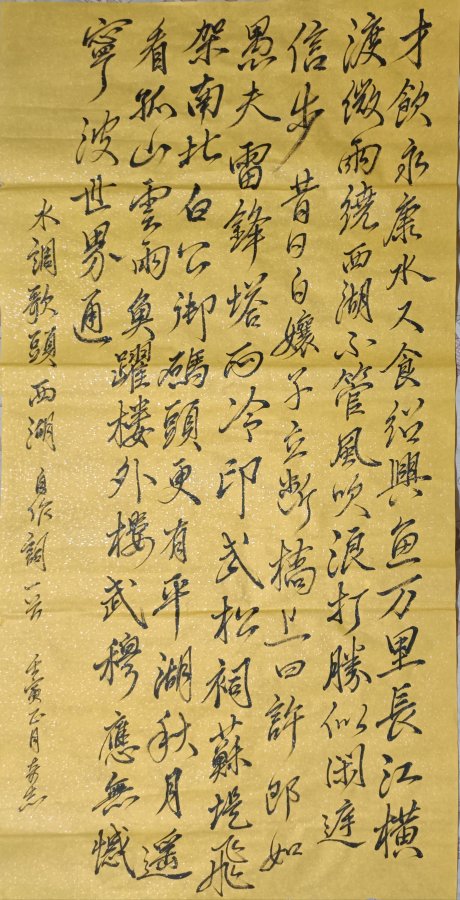 才飲永康水又食紹興魚万里長江橫
渡微雨繞西湖不管風吹浪打勝似閑庭
信步昔日白孃子立断橋上曰許郎如
愚夫雷鋒塔西泠印武松祠蘇堤飛
架南北白公御碼頭更有平湖秋月遥
看孤山雲雨魚躍楼外樓武穆應無憾
寧波世界通
水調歌頭西湖 自作詞一首 壬寅正月